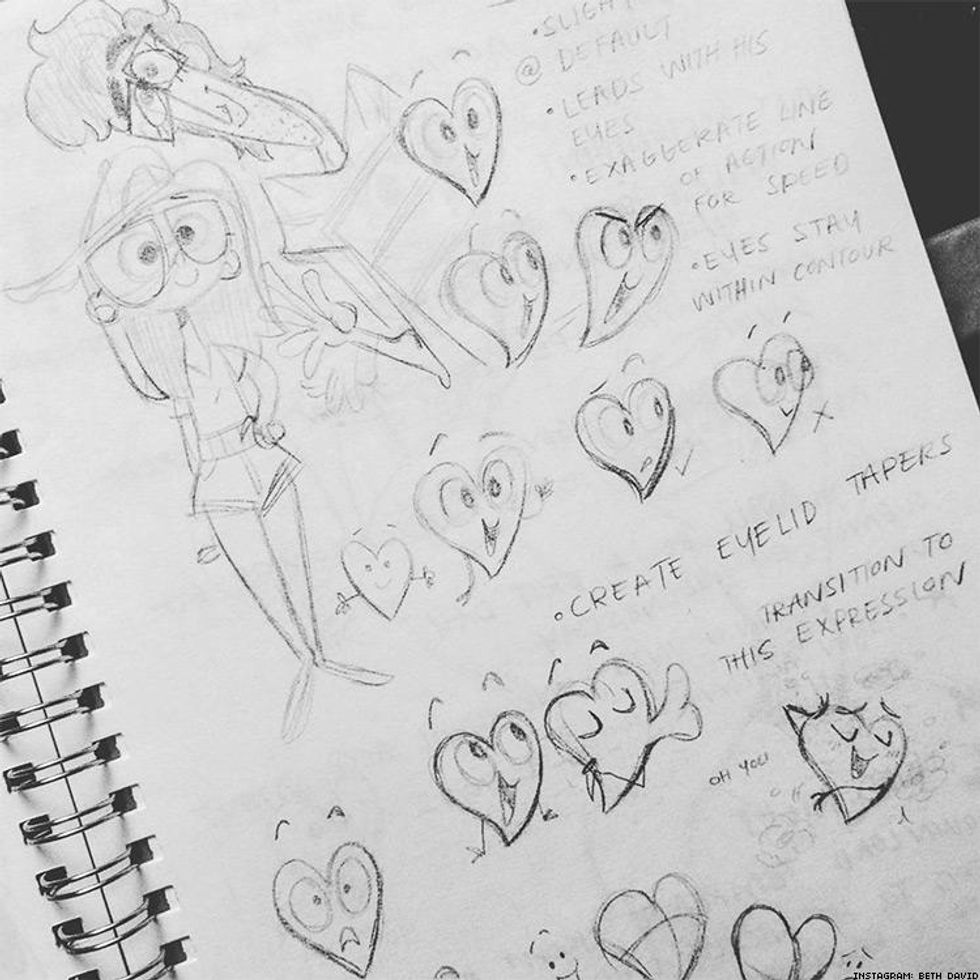 • SLIGHT
@ DEFAULT
• LEADS WITH HIS
EYES
• EXAGGERATE LINE
OF ACTION
FOR SPEED
• EYES STAY
WITHIN CONTOUR
• CREATE EYELID TAPERS
TRANSITION TO
THIS EXPRESSION
OH YOU
INSTAGRAM: BETH DAVID